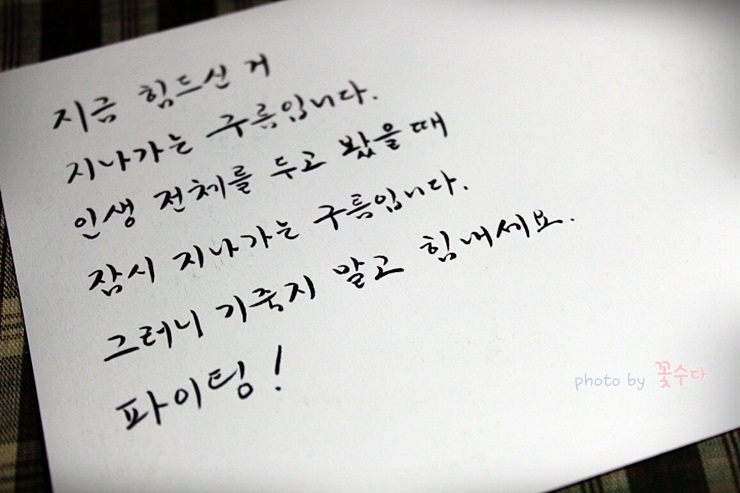 지금 힘드신 거
지나가는 구름입니다.
인생 전체를 두고 봤을 때
잠시 지나가는 구름입니다.
그러니 기죽지 말고 힘내세요.
파이팅!
photo by 꽃수다